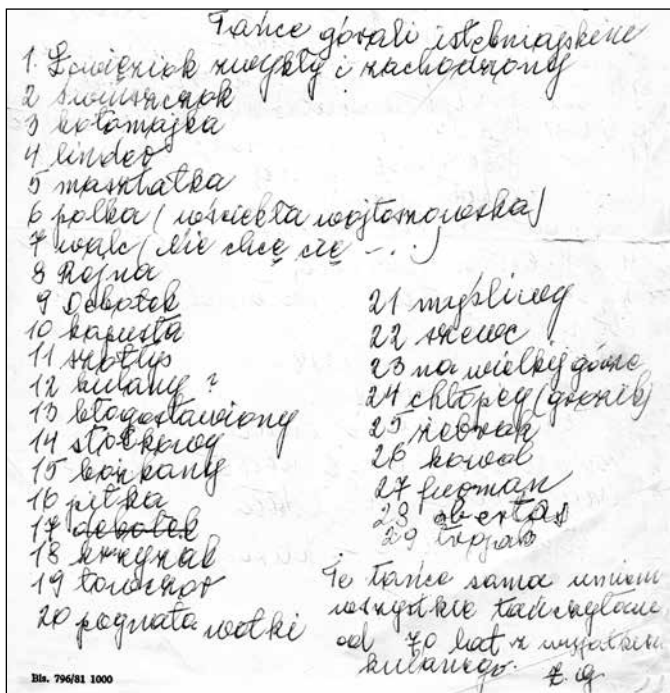 Tańce górali istebniajskine
1. Zowięziok zwykły i zachodzony
2 swińszczok
3 kołomajka
4 linder
5 maształka
6 polka (wściekła wojtosznowska)
7 walc (Nie chcę cię - . . )
8 Rojna
9 Debotok
10 kapusta
11 szotlys
12 kulany ?
13 błogosławiony
14 stołkowy
15 korkany
16 piłka
17 debotek
18 krzyżak
19 towczor
20 pognała wołki
21 myśliwy
22 szewc
23 na wielkij górze
24 chłopcy (grożib)
25 żebrak
26 kowol
27 furman
28 obertas
29 trojak
Te tańce sama umiem
wszystkie tańczyłam
od 70 lat z wyjątkiem
kulanego.
Bis. 796/81 1000